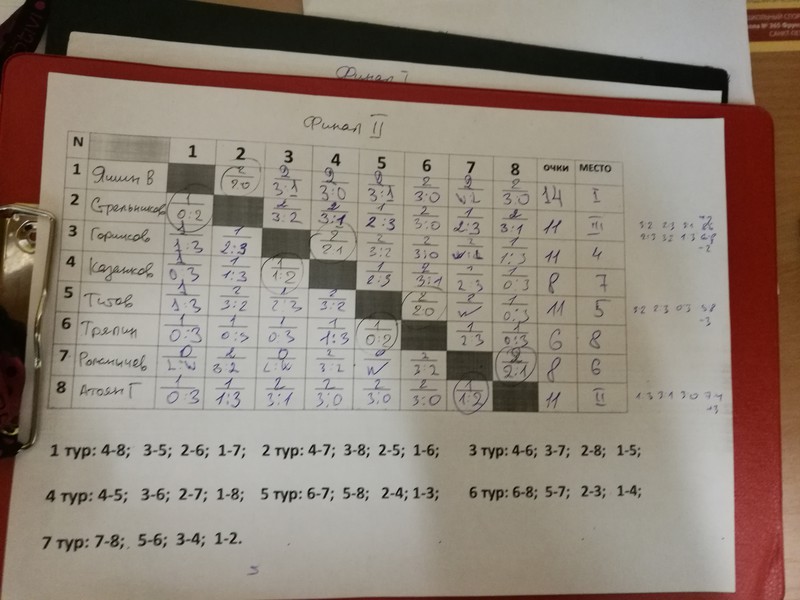 Финал I
Финал II
N 1 2 3 4 5 6 7 8 очки МЕСТО
1 Яшин В 2 2:0 2 3:1 2 3:0 2 3:1 2 3:0 2 W:L 2 3:0 14 I
2 Стрельников 1 0:2 2 3:2 2 3:1 1 2:3 2 3:0 1 2:3 2 3:1 11 III
3 Горшков 1 1:3 1 2:3 2 2:1 2 3:2 2 3:0 2 W:L 1 1:3 11 4
4 Казанков 1 0:3 1 1:3 1 1:2 1 2:3 2 3:1 1 2:3 1 0:3 8 7
5 Титов 1 1:3 2 3:2 1 2:3 2 3:2 2 2:0 2 W 1 0:3 11 5
6 Тряпин 1 0:3 1 0:3 1 0:3 1 1:3 1 0:2 1 2:3 1 0:3 6 8
7 0 L:W 2 3:2 0 L:W 2 3:2 0 W 2 3:2 2 2:1 8 6
8 Атоян Г 1 0:3 1 1:3 2 3:1 2 3:0 2 3:0 2 3:0 1 1:2 11 II
1 тур: 4-8; 3-5; 2-6; 1-7; 2 тур: 4-7; 3-8; 2-5; 1-6; 3 тур: 4-6; 3-7; 2-8; 1-5;
4 тур: 4-5; 3-6; 2-7; 1-8; 5 тур: 6-7; 5-8; 2-4; 1-3; 6 тур: 6-8; 5-7; 2-3; 1-4;
7 тур: 7-8; 5-6; 3-4; 1-2.